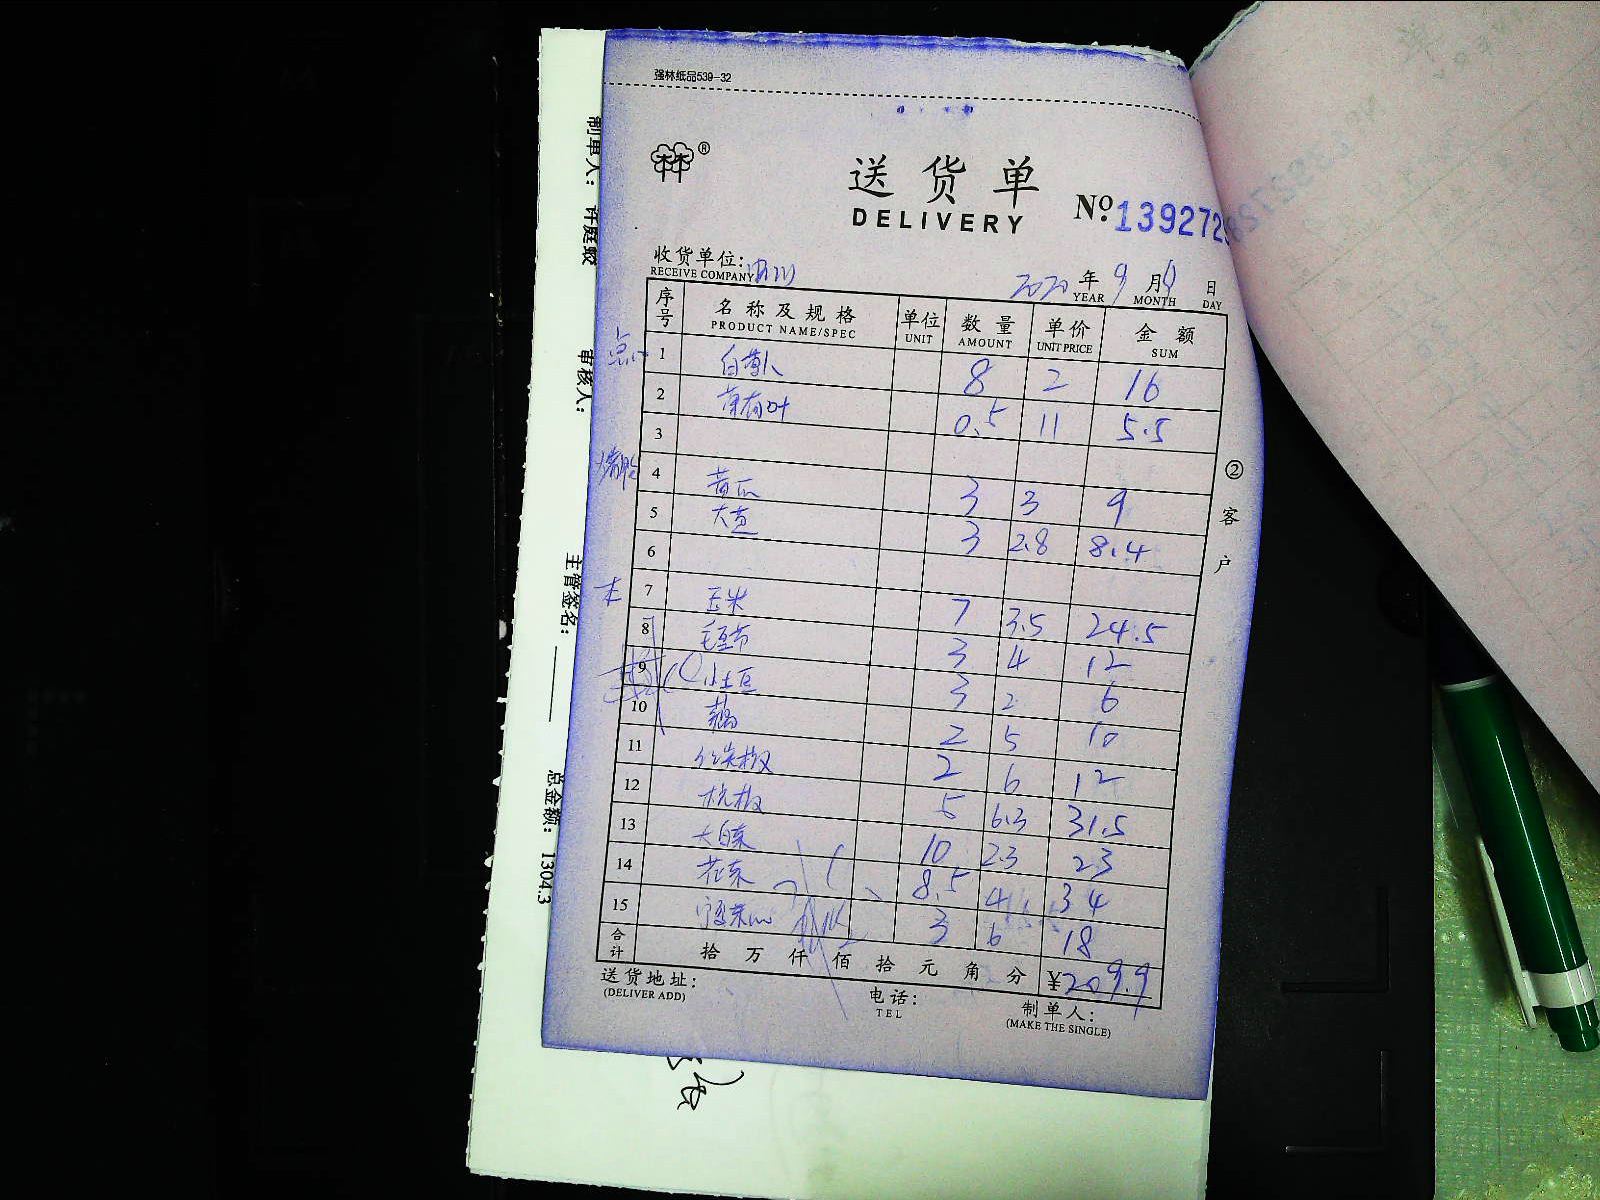 强林纸品539-32
林 ®
送货单
DELIVERY
№ 1392729
收货单位:
RECEIVE COMPANY
2020 年 9 月 日
YEAR MONTH DAY
序号 名称及规格 单位 数量 单价 金额
PRODUCT NAME/SPEC UNIT AMOUNT UNIT PRICE SUM
1 8 2 16
2 0.5 11 5.5
3
4 黄瓜 3 3 9
5 大葱 3 2.8 8.4
6
7 玉米 7 3.5 24.5
8 毛豆节 3 4 12
9 小土豆 3 2 6
10 藕 2 5 10
11 2 6 12
12 杭椒 5 6.3 31.5
13 大白菜 10 2.3 23
14 花菜 8.5 4 34
15 3 6 18
合计 拾 万 仟 佰 拾 元 角 分 ¥209.9
送货地址:
(DELIVER ADD)
电话:
TEL
制单人:
(MAKE THE SINGLE)
②客户
制单人: 许庭蛟
审核人:
主管签名:
总金额: 1304.3